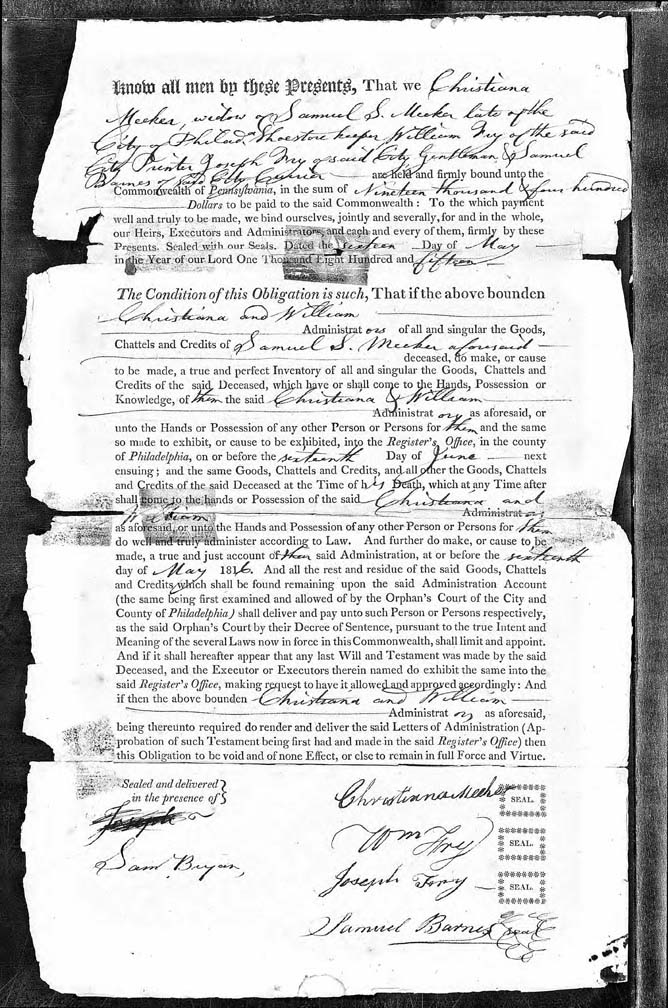 Know all men by these Presents, That we Christiana
Meeker, widow of Samuel S. Meeker late of the
City of Philad. Shoestore keeper William Fry of the said
City Printer Joseph Fry of said City Gentleman & Samuel
Barnes of said City Currier are held and firmly bound unto the
Commonwealth of Pennsylvania, in the sum of Nineteen thousand & four hundred
Dollars to be paid to the said Commonwealth: To the which payment
well and truly to be made, we bind ourselves, jointly and severally, for and in the whole,
our Heirs, Executors and Administrators, and each and every of them, firmly by these
Presents. Sealed with our Seals. Dated the sixteen Day of May
in the Year of our Lord One Thousand Eight Hundred and fifteen
The Condition of this Obligation is such, That if the above bounden
Christiana and William
Administrators of all and singular the Goods,
Chattels and Credits of Samuel S. Meeker aforesaid
deceased, do make, or cause
to be made, a true and perfect Inventory of all and singular the Goods, Chattels and
Credits of the said Deceased, which have or shall come to the Hands, Possession or
Knowledge, of them the said Christiana & William
Administrators as aforesaid, or
unto the Hands or Possession of any other Person or Persons for them and the same
so made to exhibit, or cause to be exhibited, into the Register's Office, in the county
of Philadelphia, on or before the sixteenth Day of June next
ensuing; and the same Goods, Chattels and Credits, and all other the Goods, Chattels
and Credits of the said Deceased at the Time of his Death, which at any Time after
shall come to the hands or Possession of the said Christiana and
William Administrators
as aforesaid, or unto the Hands and Possession of any other Person or Persons for them
do well and truly administer according to Law. And further do make, or cause to be
made, a true and just account of their said Administration, at or before the sixteenth
day of May 1816. And all the rest and residue of the said Goods, Chattels
and Credits which shall be found remaining upon the said Administration Account
(the same being first examined and allowed of by the Orphan's Court of the City and
County of Philadelphia) shall deliver and pay unto such Person or Persons respectively,
as the said Orphan's Court by their Decree of Sentence, pursuant to the true Intent and
Meaning of the several Laws now in force in this Commonwealth, shall limit and appoint.
And if it shall hereafter appear that any last Will and Testament was made by the said
Deceased, and the Executor or Executors therein named do exhibit the same into the
said Register's Office, making request to have it allowed and approved accordingly: And
if then the above bounden Christiana and William
Administrators as aforesaid,
being thereunto required do render and deliver the said Letters of Administration (Ap-
probation of such Testament being first had and made in the said Register's Office) then
this Obligation to be void and of none Effect, or else to remain in full Force and Virtue.
Sealed and delivered
in the presence of
Joseph
Sam. Bryan,
Christianna Meeker SEAL.
Wm Fry SEAL.
Joseph Fry SEAL.
Samuel Barnes seal